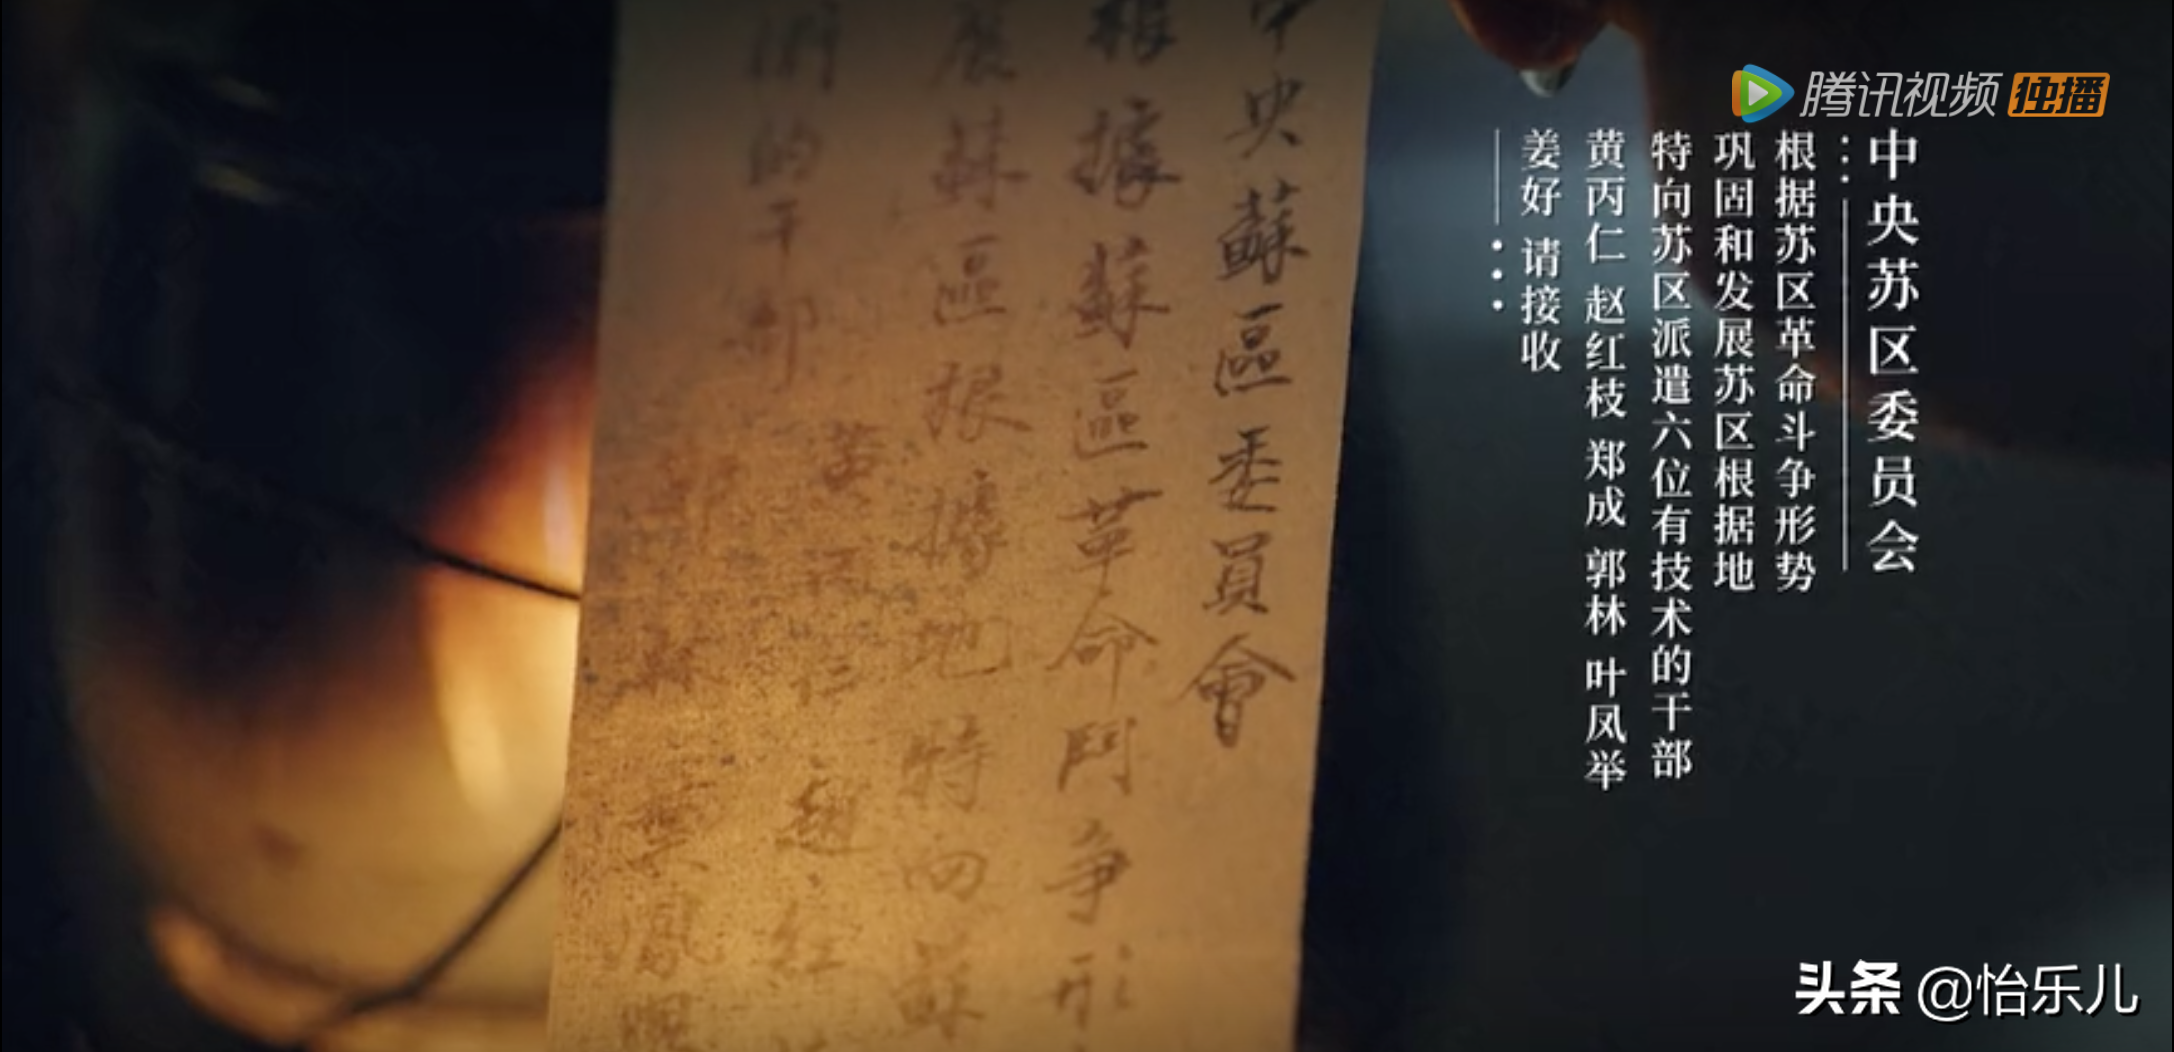 腾讯视频 独播
中央苏区委员会
根据苏区革命斗争形势
巩固和发展苏区根据地
特向苏区派遣六位有技术的干部
黄丙仁 赵红枝 郑成 郭林 叶凤举
姜好 请接收
中央蘇區委員會
根據蘇區革命鬥争形
展蘇區根據地特向蘇
術的干部
黄丙仁、趙、紅
郭林葉鳳
头条 @怡乐儿